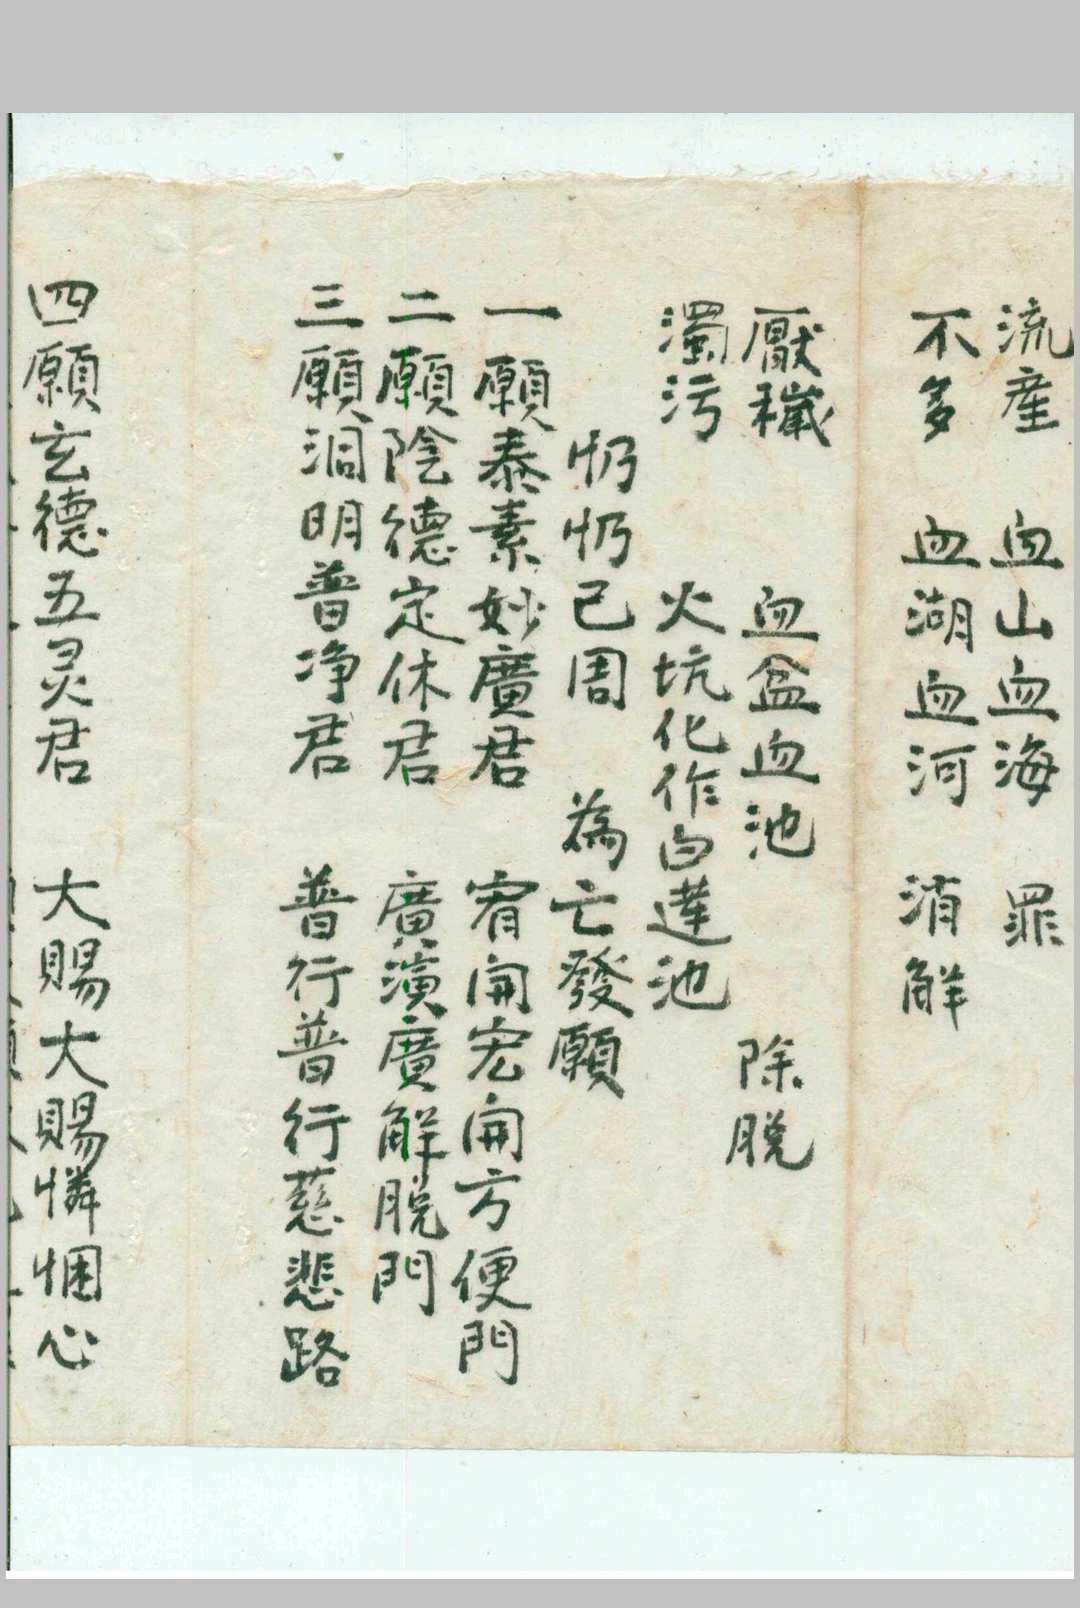 流産　血山血海　罪
不多　血湖血河　消解
厭穢　血盆血池　除脱
濁污　火坑化作白蓮池
忉忉已周　為亡發願
一願泰素妙廣君　宥開宏開方便門
二願陰德定休君　廣演廣解脱門
三願洞明普净君　普行普行慈悲路
四願玄德五灵君　大賜大賜憐悃心